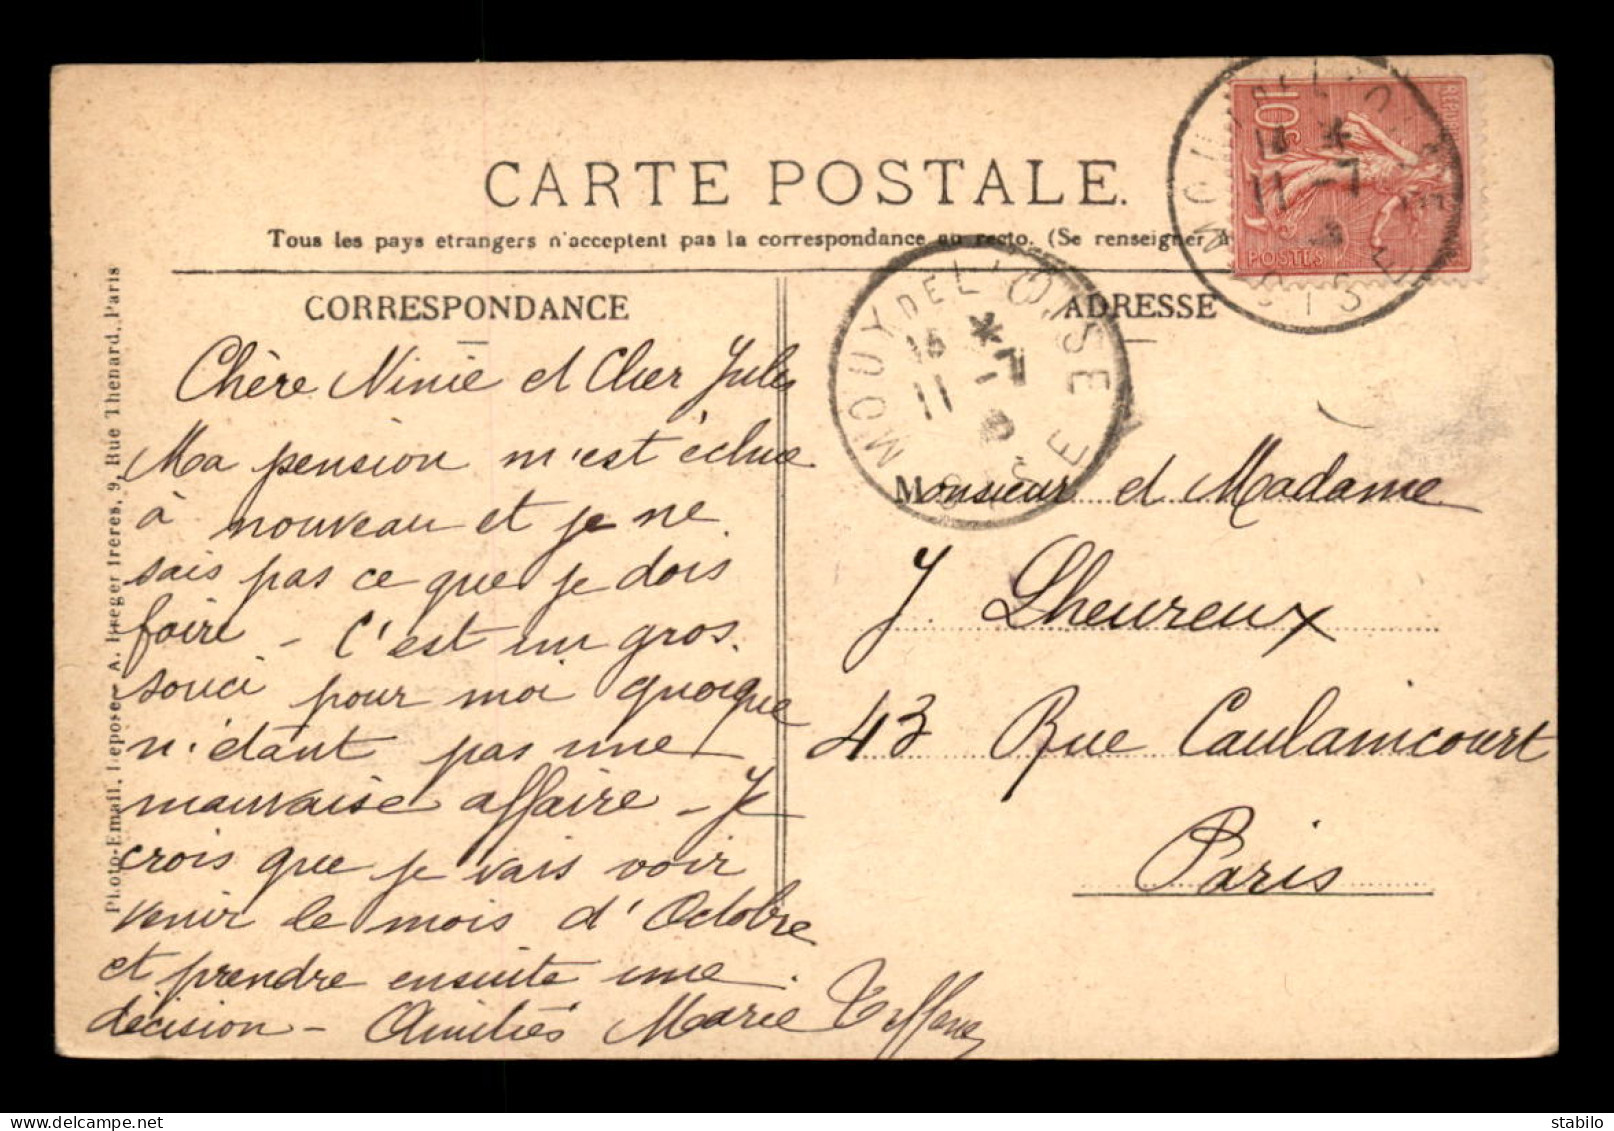 CARTE POSTALE.
Tous les pays etrangers n'acceptent pas la correspondance au recto. (Se renseigner
CORRESPONDANCE
Chère Ninie et Cher Jules
Ma pension m'est échue
à nouveau et je ne
sais pas ce que je dois
faire – C'est un gros
souci pour moi quoique
n'étant pas une
mauvaise affaire – Je
crois que je vais voir
venir le mois d'Octobre
et prendre ensuite une
décision – Amitiés Marie
ADRESSE
Monsieur et Madame
J. Lheureux
43 Rue Caulaincourt
Paris
MOUY DEL'OISE
11 -7
OISE
10c
POSTES
MOUY DEL'OISE
11 -7
OISE
Photo-Email. Deposee A. Jaeger freres, 9, Rue Thenard, Paris
delcampe.net
stabilo